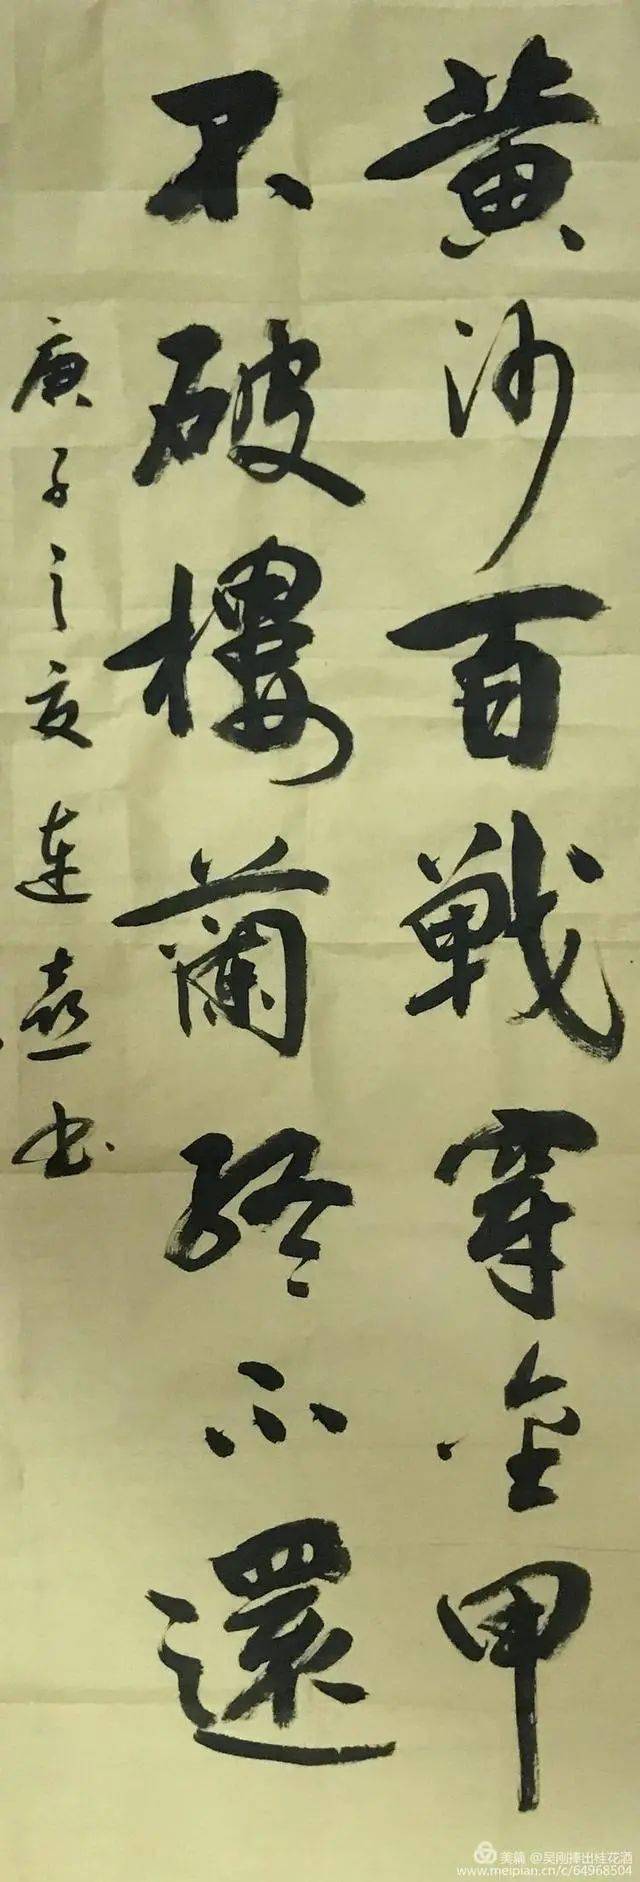 黄沙百戰穿金甲
不破樓蘭終不還
庚子之夏連喜书
美篇 @吴刚捧出桂花酒
www.meipian.cn/c/64968504